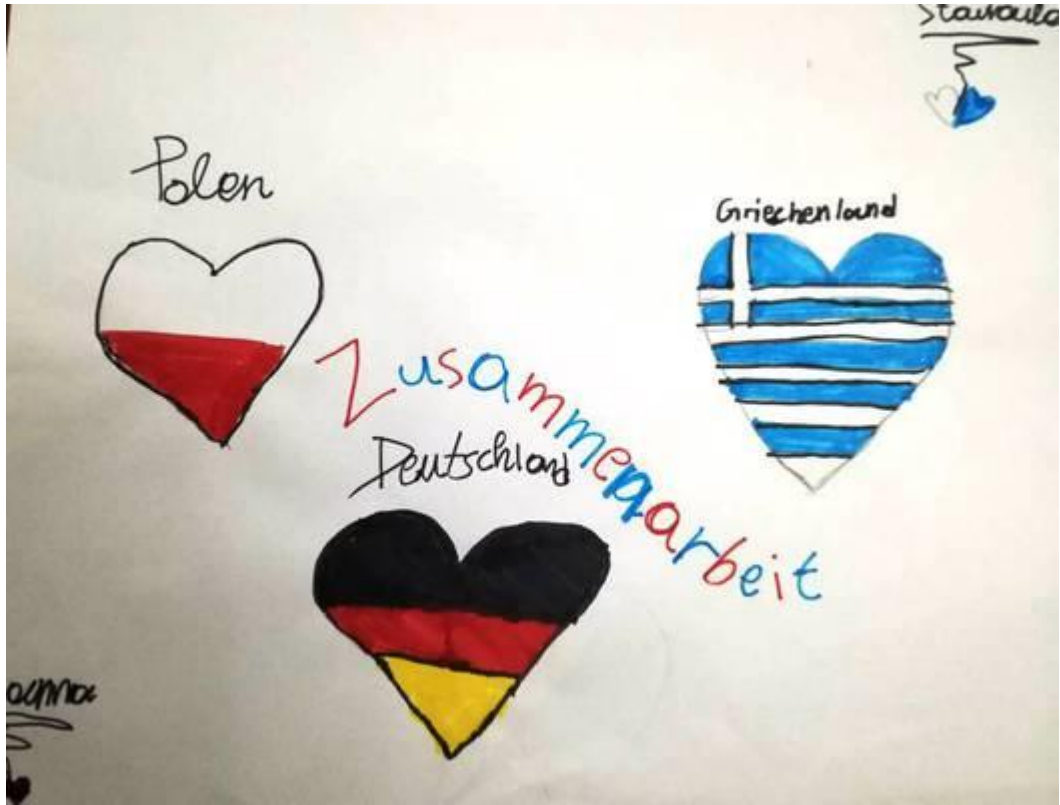 Polen
Griechenland
Zusammenarbeit
Deutschland